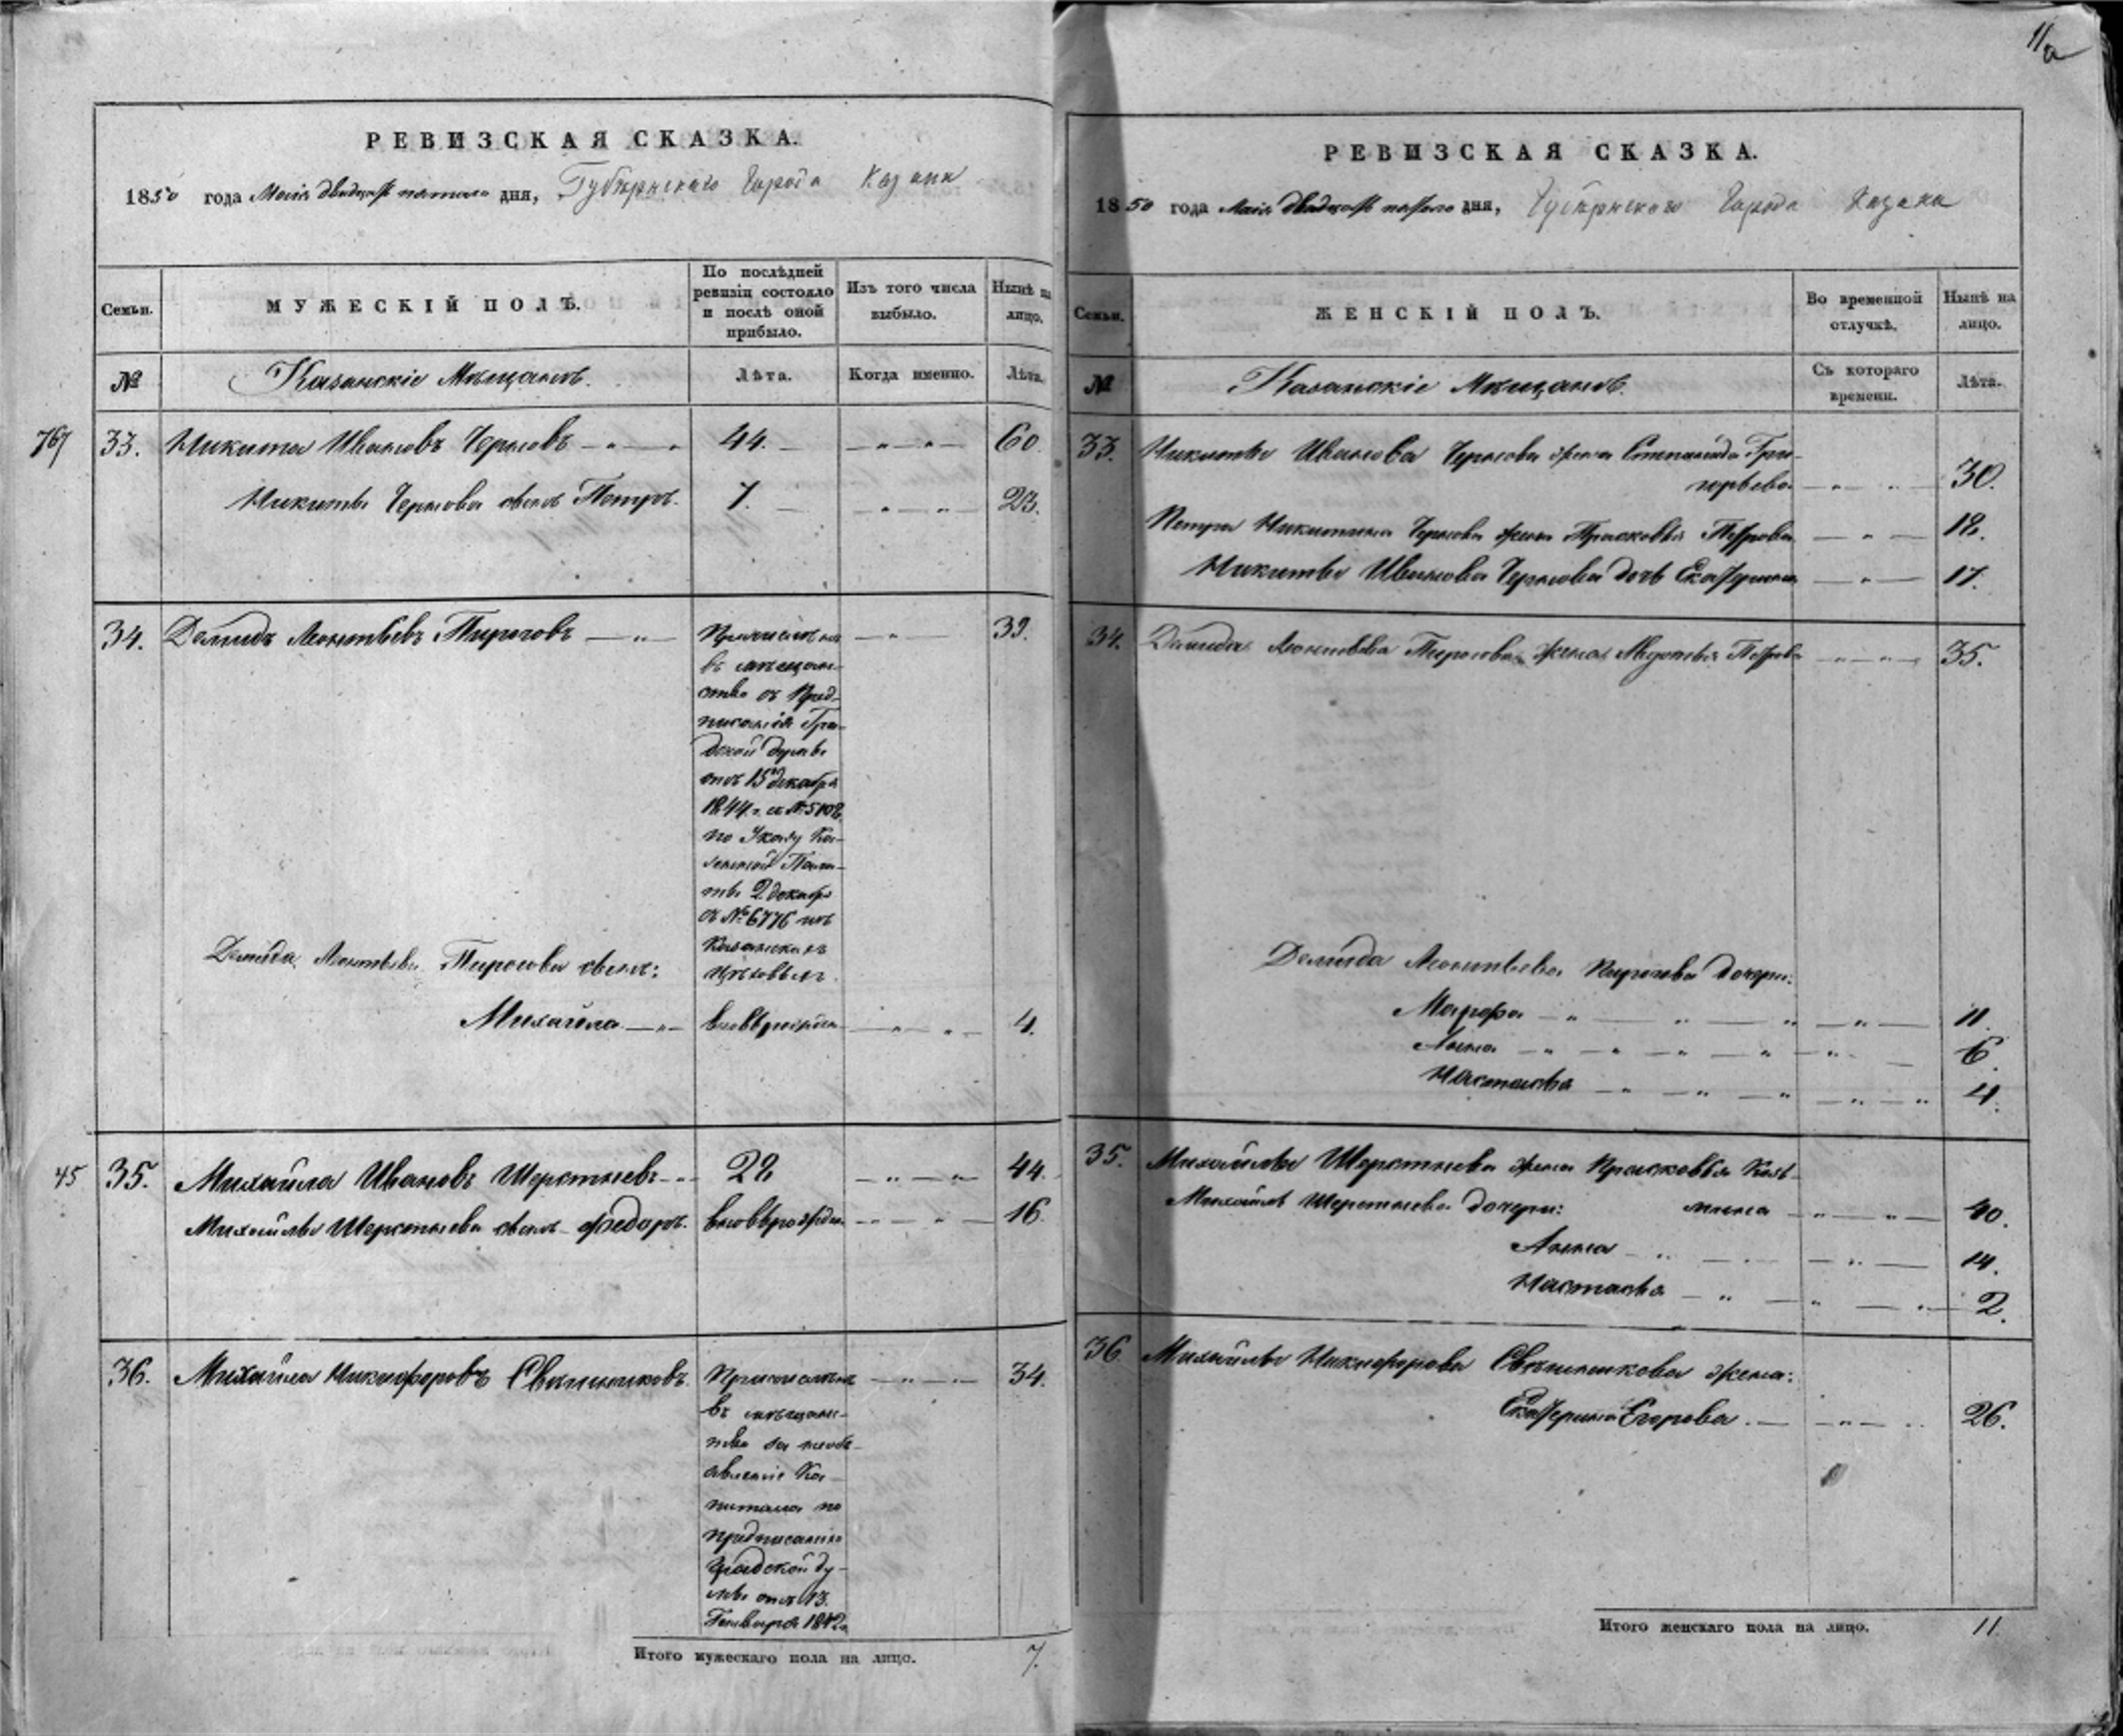 11а
РЕВИЗСКАЯ СКАЗКА.
1850 года Маія двадцать пятаго дня, Губернскаго Города Казани
Семьи.
МУЖЕСКІЙ ПОЛЪ.
По послѣдней ревизіи состояло и послѣ оной прибыло.
Изъ того числа выбыло.
Нынѣ на лицо.
№
Казанскіе Мѣщане.
Лѣта.
Когда именно.
Лѣта.
767 33. Никита Ивановъ Черновъ 44. 60.
Никиты Чернова сынъ Петръ. 7. 23.
34. Демидъ Леонтьевъ Пироговъ 39.
Причисленъ
въ мѣщан-
ство съ Пред-
писанія Гра-
дской думы
отъ 15 декабря
1844 г. за №5102
по Указу Ка-
зенной Пала-
ты 2 декабр
за №6776 изъ
Казанскихъ
Цѣховыхъ.
Демида Леонтьева Пирогова сынъ:
Михайла вновьрожден 4.
45 35. Михайла Ивановъ Шерстневъ 28 44.
Михайлы Шерстнева сынъ Федоръ. вновьрожден 16.
36. Михайла Никифоровъ Свѣшниковъ 34.
Причисленъ
въ мѣщан-
тво за необъ-
явленіе Ка-
питала по
предписанію
Градской ду-
мы отъ 13.
Генваря 1842 г.
Итого мужескаго пола на лицо. 7.
РЕВИЗСКАЯ СКАЗКА.
1850 года Маія двадцать пятаго дня, Губернскаго Города Казани
Семьи.
ЖЕНСКІЙ ПОЛЪ.
Во временной отлучкѣ.
Нынѣ на лицо.
№
Казанскіе Мѣщане.
Съ котораго времени.
Лѣта.
33. Никиты Иванова Чернова жена Степанида Гри-
горьева 30.
Петра Никитина Чернова жена Прасковья Петрова 18.
Никиты Иванова Чернова дочь Екатерина 17.
34. Демида Леонтьева Пирогова жена Авдотья Петрова 35.
Демида Леонтьева Пирогова дочери:
Марфа 11.
Анна 6.
Настасья 4.
35. Михайлы Шерстнева жена Прасковья Козь-
мина 40.
Михайлы Шерстнева дочери:
Анна 14.
Настасья 2.
36. Михайлы Никифорова Свѣшникова жена:
Екатерина Егорова. 26.
Итого женскаго пола на лицо. 11